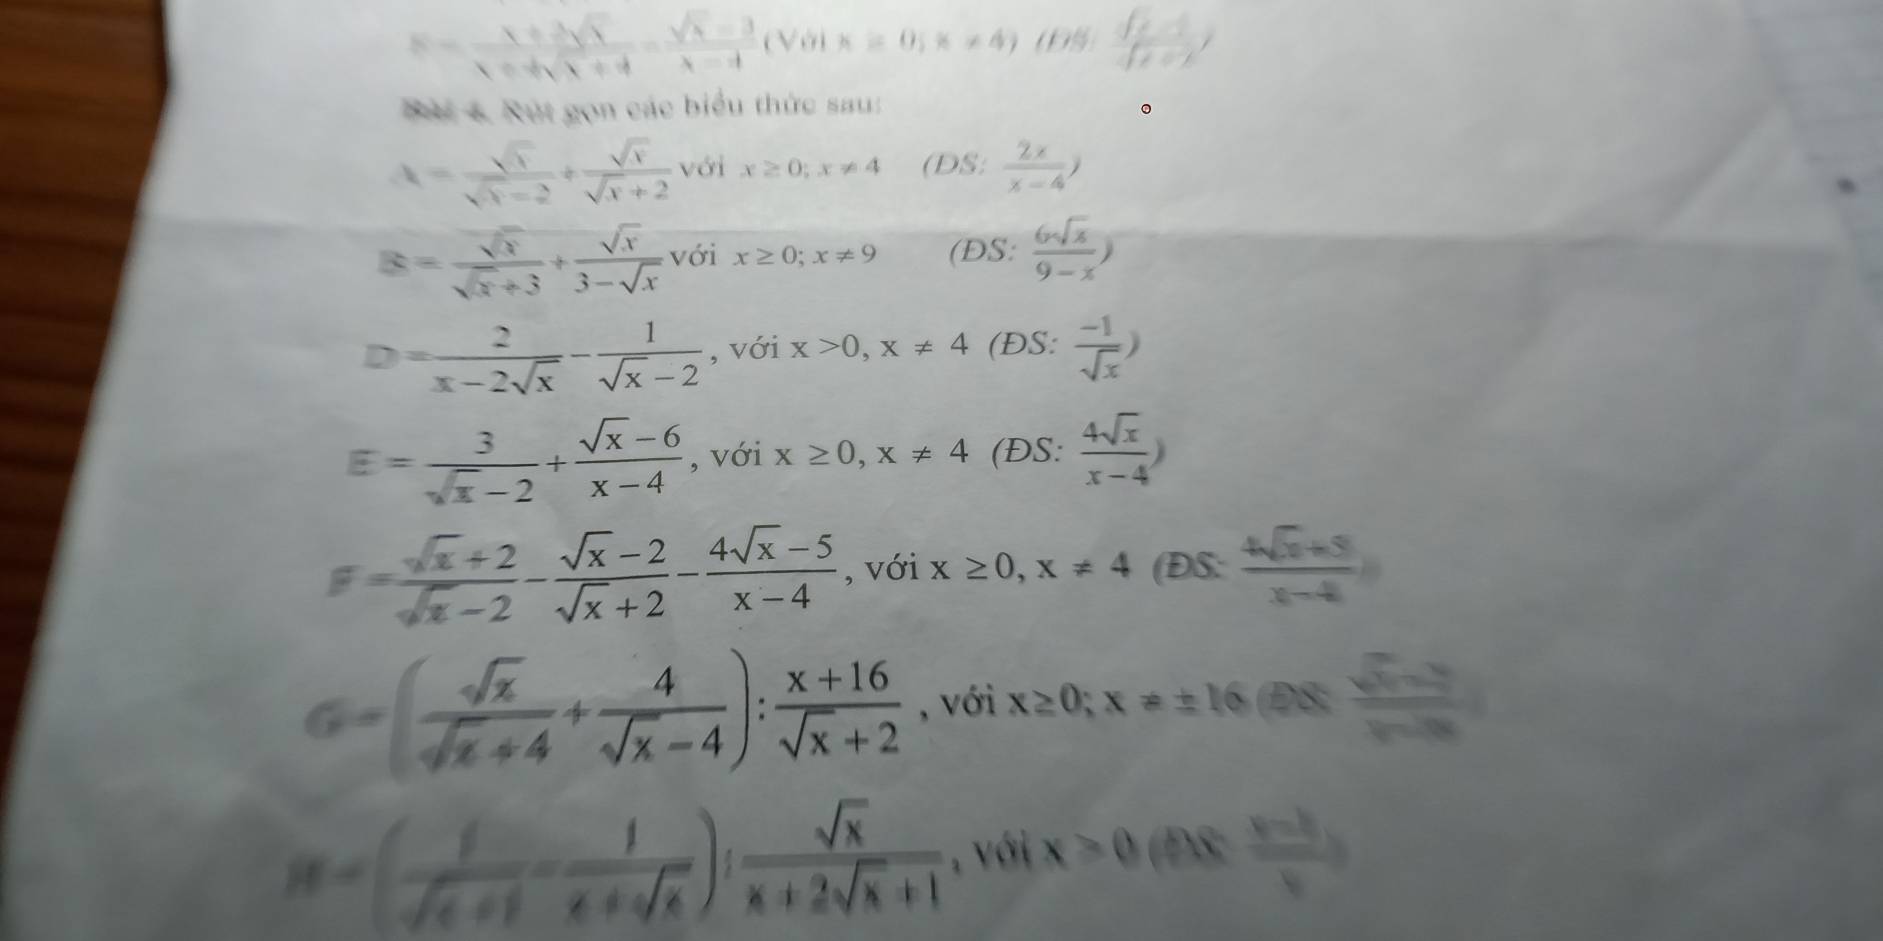 x + 2√x / x + 4√x + 4 - √x - 3 / x - 4 (Với x ≥ 0; x ≠ 4) (ĐS:
Rút gọn các biểu thức sau:
A = √x / (√x - 2) + √x / (√x + 2) với x ≥ 0; x ≠ 4 (ĐS: 2x / (x - 4))
B = √x / (√x + 3) + √x / (3 - √x) với x ≥ 0; x ≠ 9 (ĐS: 6√x / (9 - x))
D = 2 / (x - 2√x) - 1 / (√x - 2), với x >0, x ≠ 4 (ĐS: -1 / √x)
E = 3 / (√x - 2) + (√x - 6) / (x - 4), với x ≥0, x ≠ 4 (ĐS: 4√x / (x - 4))
F = (√x + 2) / (√x - 2) - (√x - 2) / (√x + 2) - (4√x - 5) / (x - 4), với x ≥0, x ≠ 4 (ĐS: (4√x + 5) / (x - 4))
G = (√x / (√x + 4) + 4 / (√x - 4)) : (x + 16) / (√x + 2), với x≥0; x ≠ ± 16 (ĐS:
H = (1 / (√x + 1) - 1 / (x + √x)) : √x / (x + 2√x + 1), với x > 0 (ĐS: (x - 1) / x)